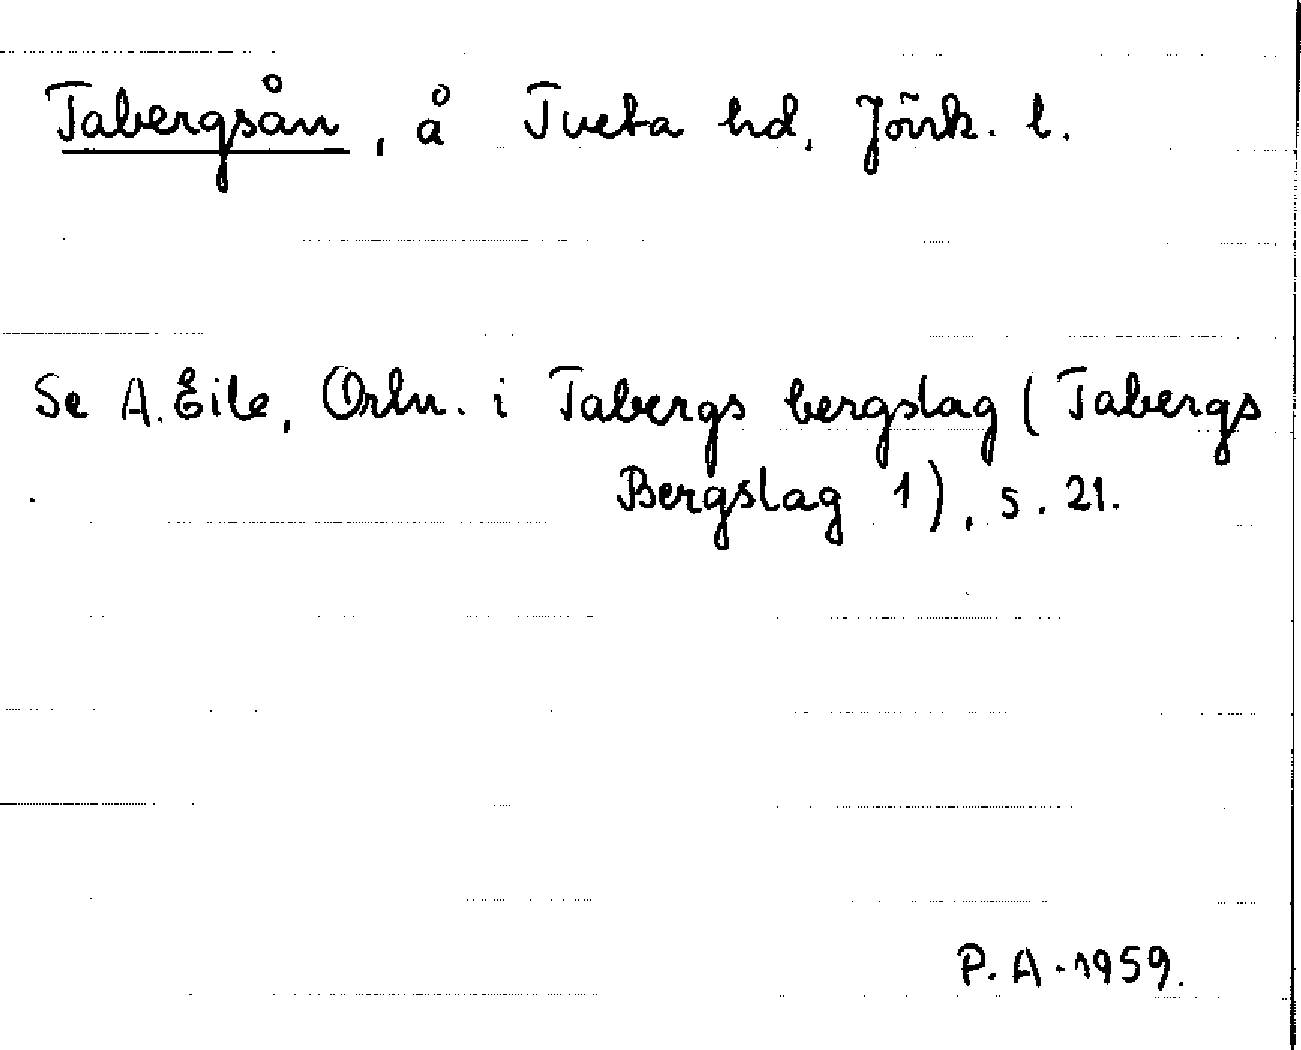 Tabergsån, å Tveta hd, Jönk. l.
Se A. Eile, Ortn. i Tabergs bergslag (Tabergs
Bergslag 1), s. 21.
P. A. 1959.